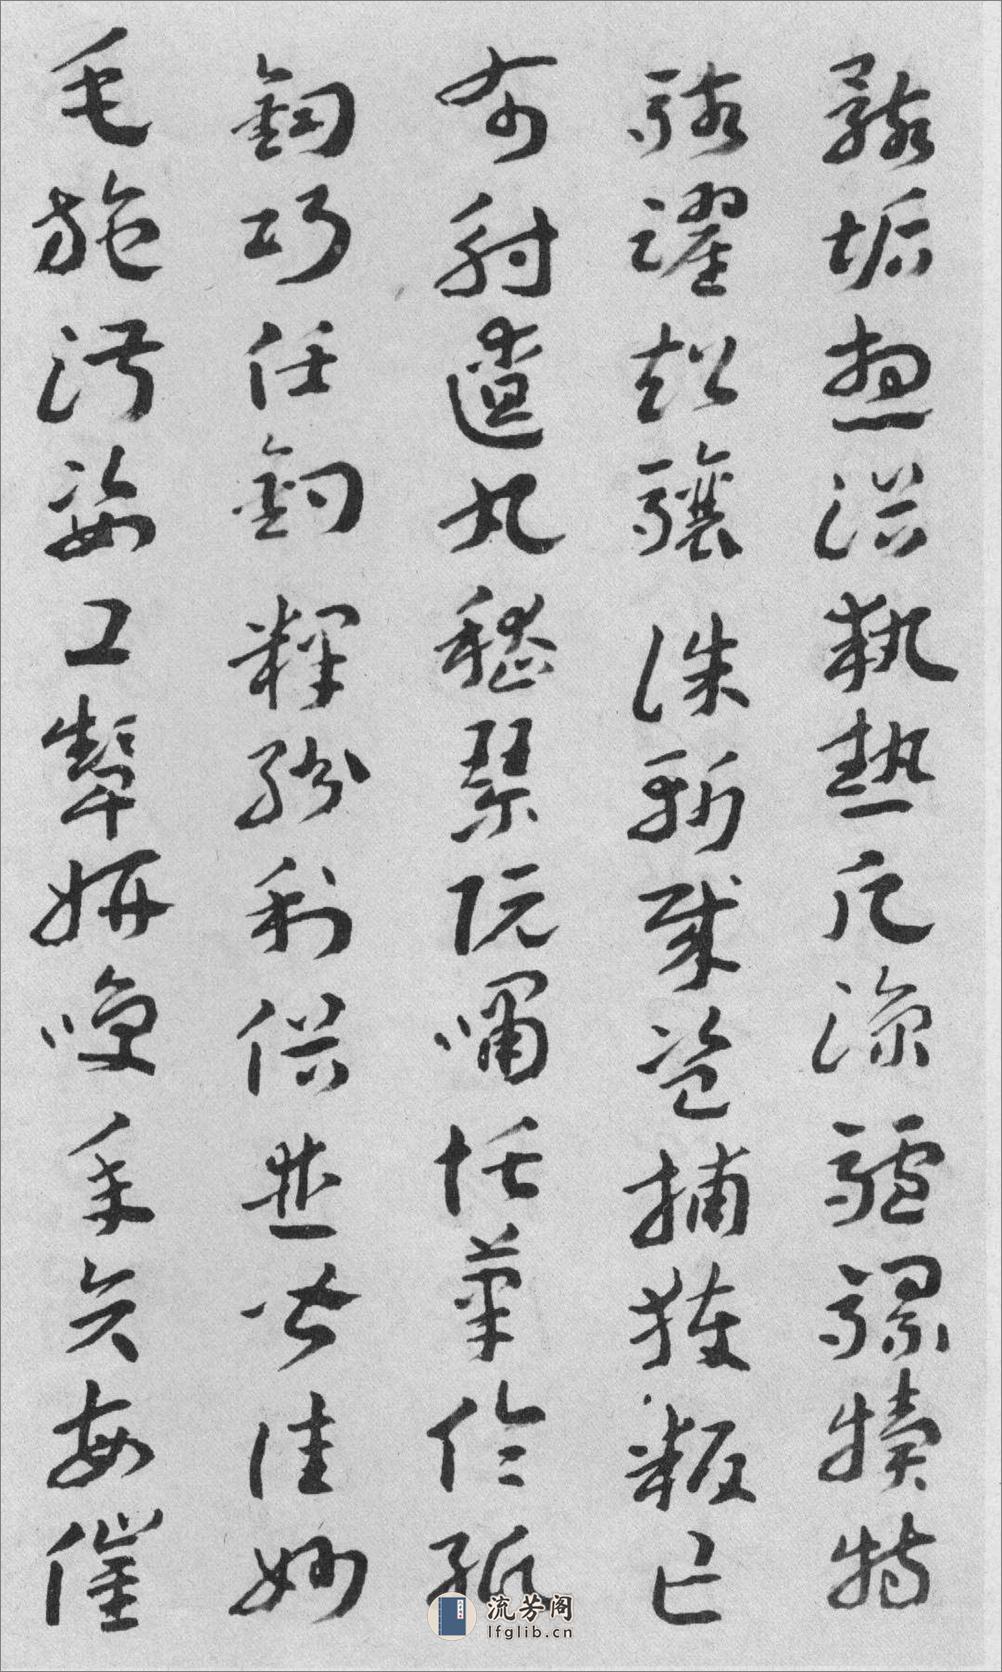 骸垢想浴執熱願涼驢騾犢特
駭躍超驤誅斬賊盜捕獲叛亡
布射遼丸嵇琴阮嘯恬筆倫紙
鈞巧任釣釋紛利俗並皆佳妙
毛施淑姿工顰妍笑年矢每催
流芳阁
lfglib.cn